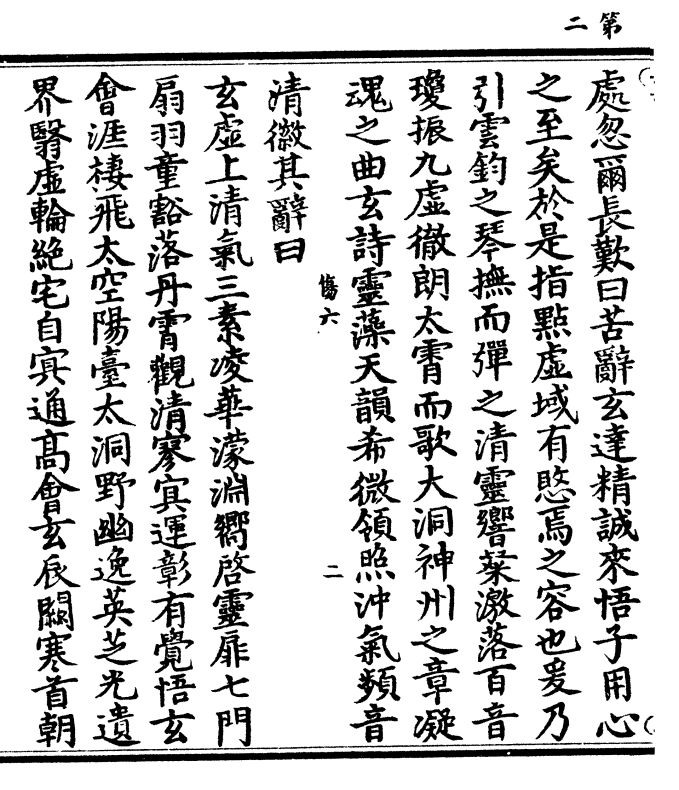 第二
處忽爾長歎曰苦辭玄達精誠來悟子用心
之至矣於是指點虛域有愍焉之容也爰乃
引雲鈞之琴撫而彈之清靈響粲激落百音
瓊振九虛徹朗太霄而歌大洞神州之章凝
魂之曲玄詩靈藻天韻希微領照沖氣頻音
傷六
二
清徽其辭曰
玄虛上清氣三素凌華濛淵嚮啓靈扉七門
扇羽童豁落丹霄觀清寥寘運彰有覺悟玄
會涯棲飛太空陽臺太洞野幽逸英芝光遺
界翳虛輪絕宅自寘通高會玄辰闕寒首朝